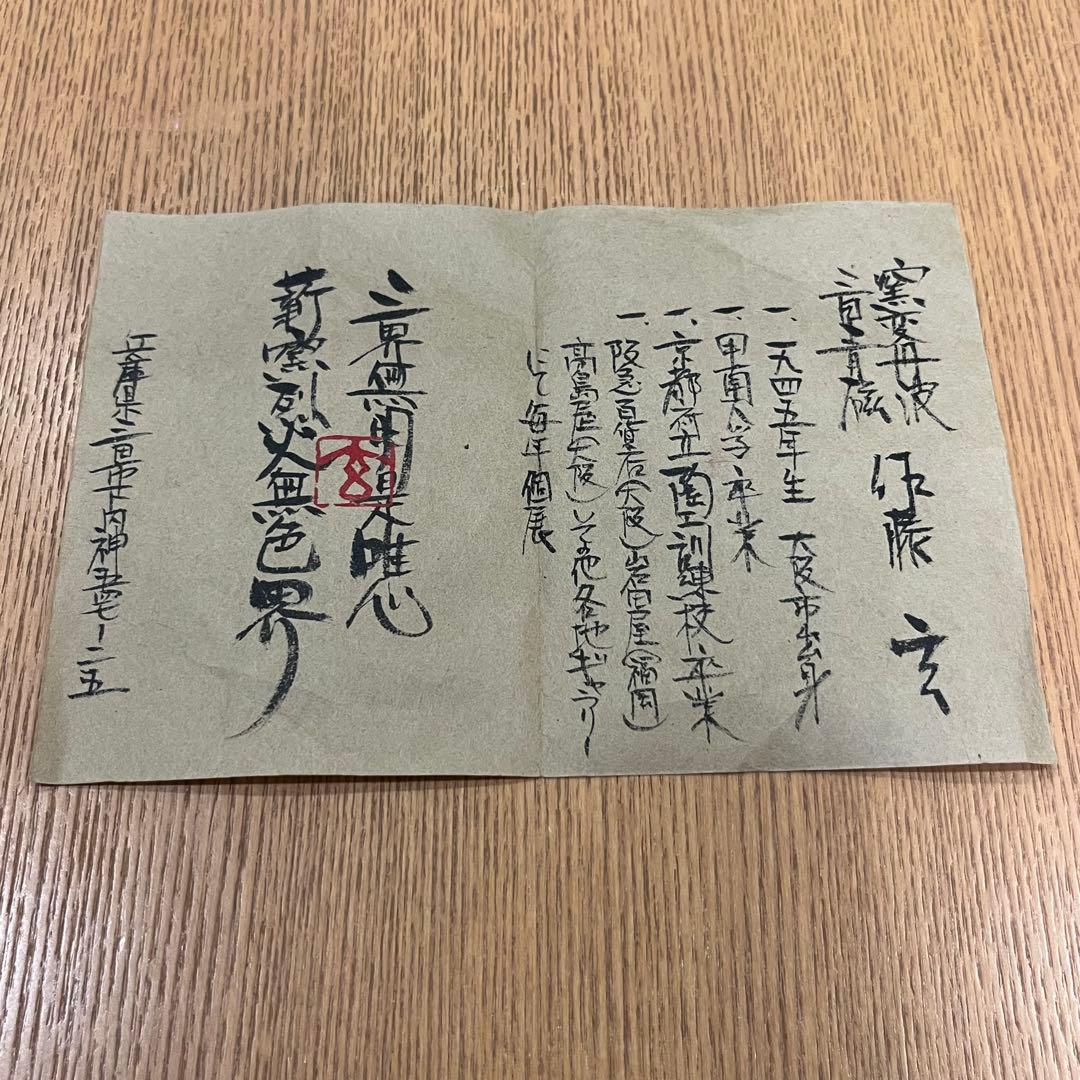 窯変丹波
三田青磁
伊藤 玄
一、一九四五年生 大阪市出身
一、甲南大学卒業
一、京都府立陶工訓練校卒業
一、阪急百貨店(大阪)岩田屋(福岡)
高島屋(大阪)その他各地ギャラリー
にて毎年個展
三界無用是唯心
薪窯烈火無色界
玄
兵庫県三田市下内神五四七ー二五